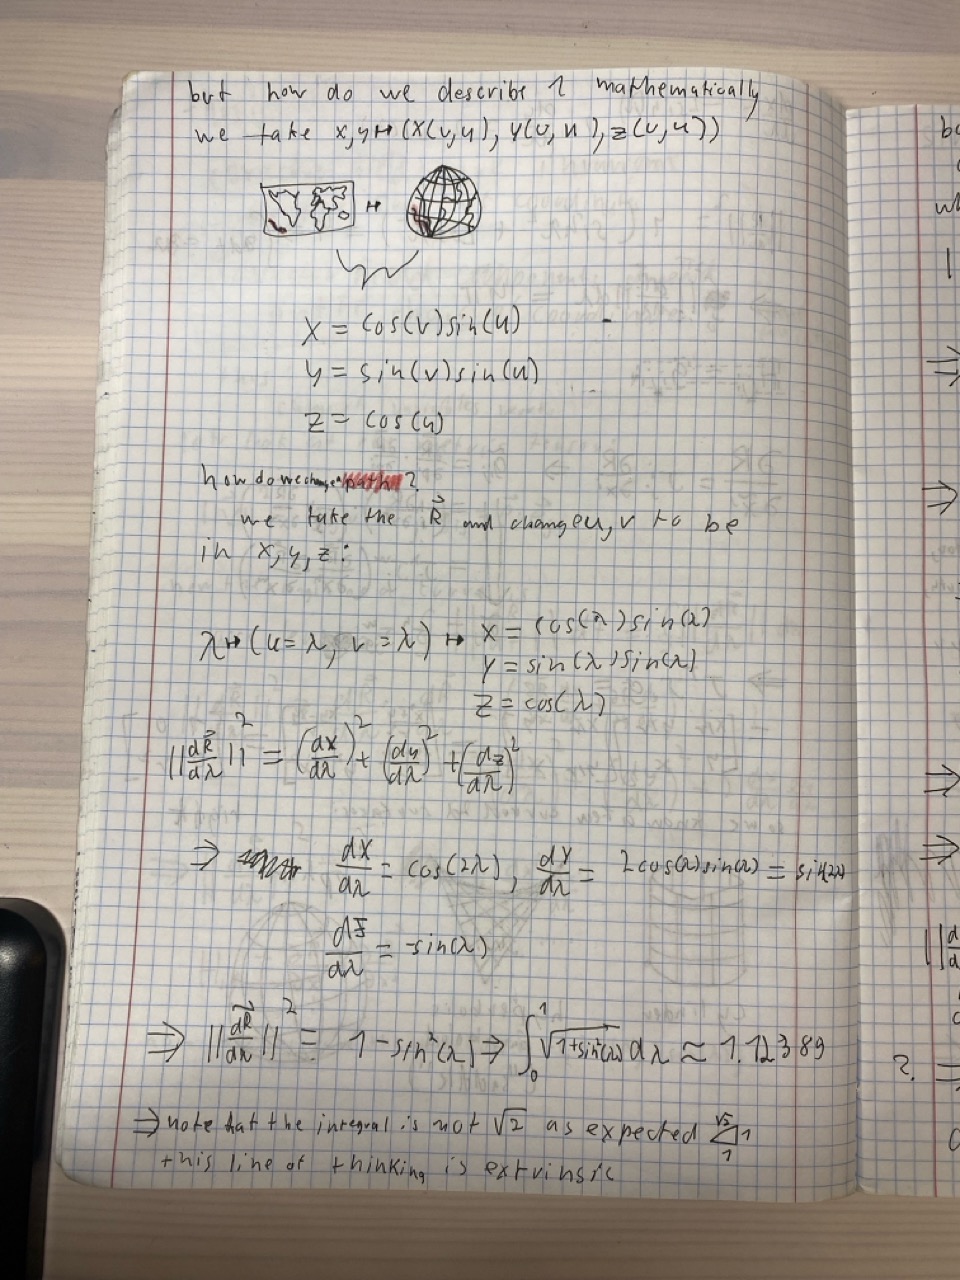 but how do we describe 1 mathematically
we take x,y ↦ (X(v,u), Y(v,u), z(v,u))
↦
X = cos(v)sin(u)
y = sin(v)sin(u)
z = cos(u)
how do we change ?
we take the R⃗ and change u,v to be
in x,y,z:
λ ↦ (u=λ, v=λ) ↦ x = cos(λ)sin(λ)
y = sin(λ)sin(λ)
z = cos(λ)
||dR⃗/dλ||² = (dx/dλ)² + (dy/dλ)² + (dz/dλ)²
⇒ dx/dλ = cos(2λ), dy/dλ = 2cos(λ)sin(λ) = sin(2λ)
dz/dλ = -sin(λ)
⇒ ||dR⃗/dλ||² = 1-sin²(λ) ⇒ ∫₀¹ √(1+sin²(λ)) dλ ≈ 1.12389
⇒ note that the integral is not √2 as expected √2 1 1
this line of thinking is extrinsic